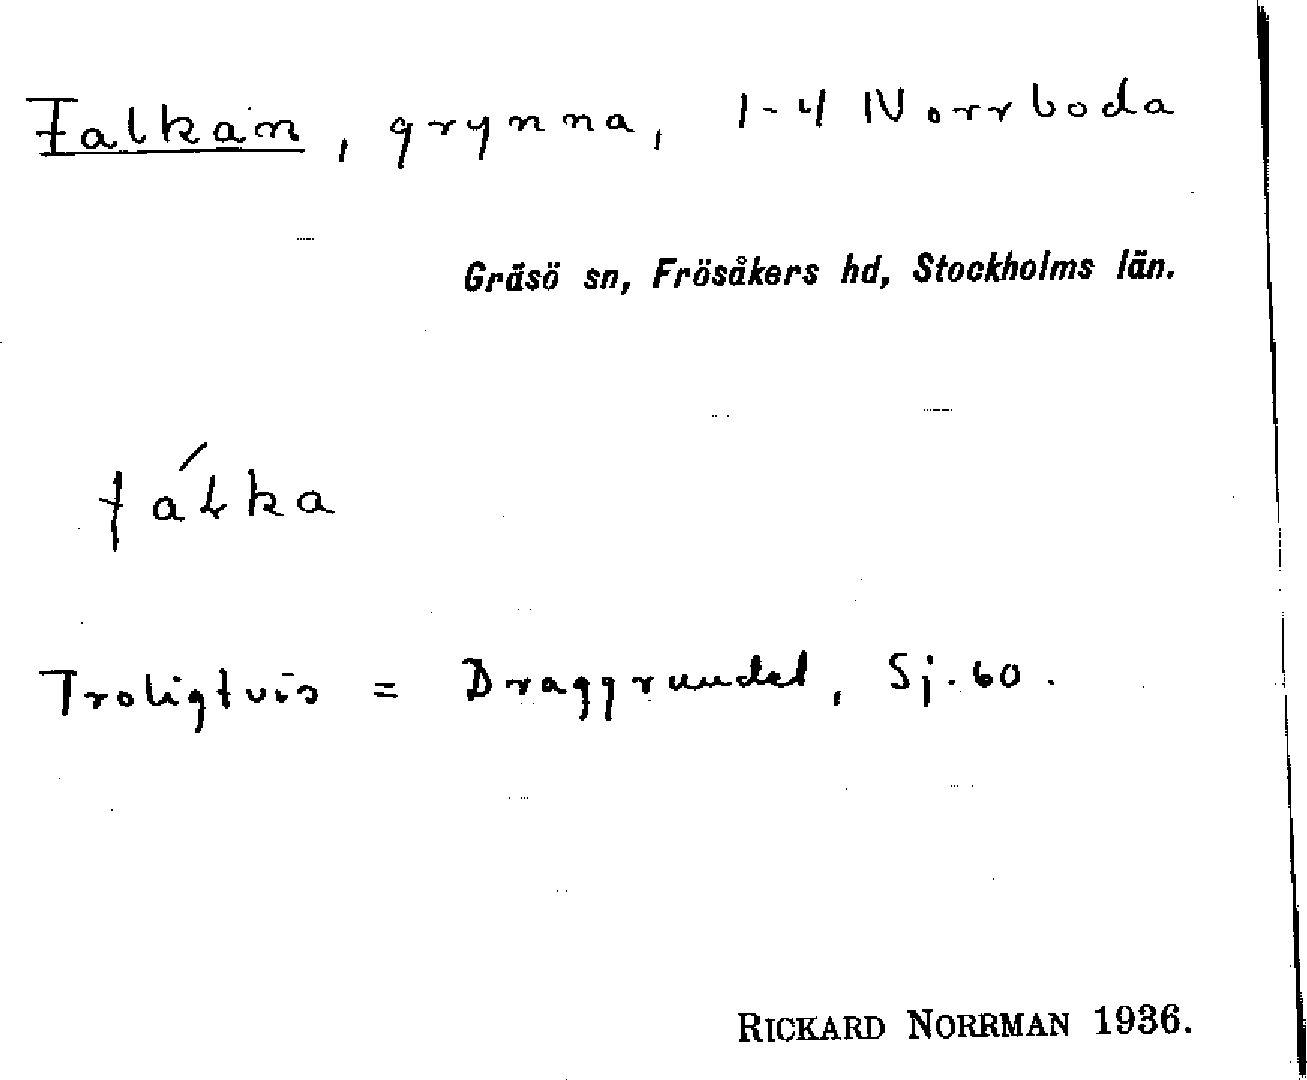 Falkan, grynna, 1-4 Norrboda
Gräsö sn, Frösåkers hd, Stockholms län.
fáƚka
Troligtvis = Draggrundet, Sj. 60.
RICKARD NORRMAN 1936.